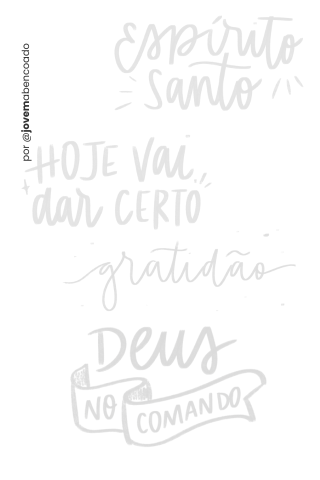 Espírito
Santo
por @jovemabencoado
HOJE vai
dar CERTO
gratidão
Deus
NO COMANDO